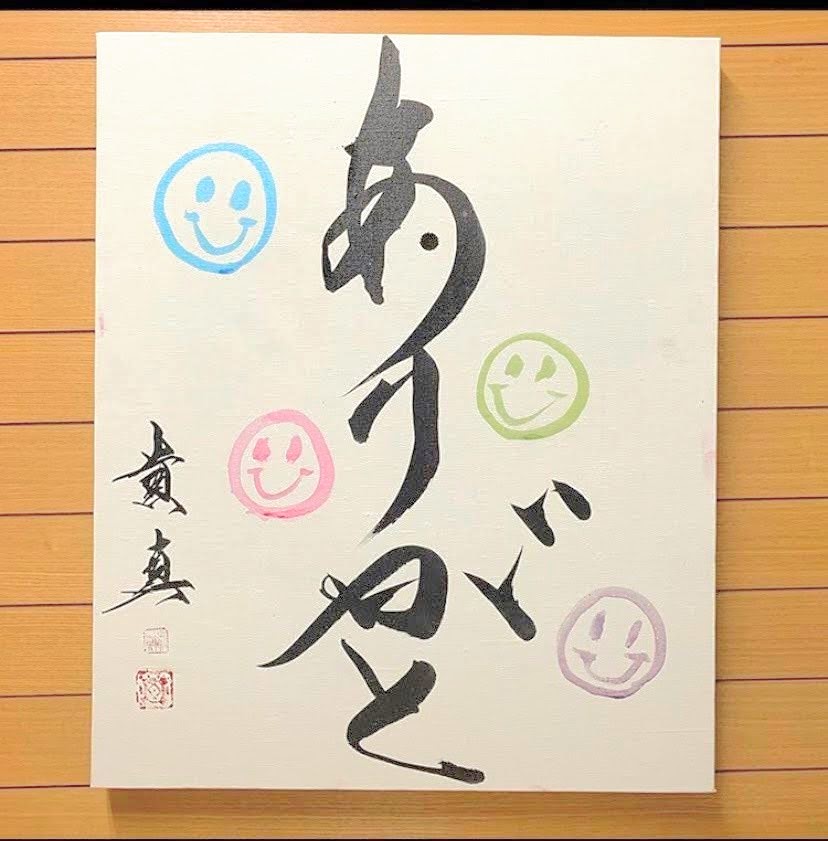 ありがと
貴真